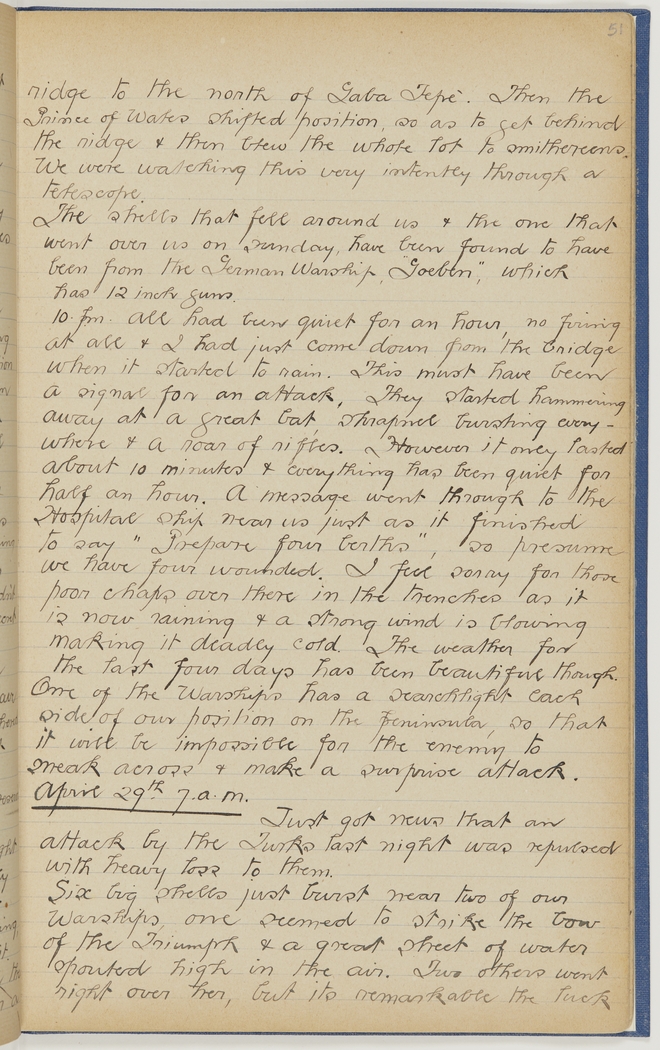 51
ridge to the north of Gaba Tepe. Then the
Prince of Wales shifted position, so as to get behind
the ridge & then blew the whole lot to smithereens.
We were watching this very intently through a
telescope.
The shells that fell around us & the one that
went over us on sunday, have been found to have
been from the German Warship, "Goeben", which
has 12 inch guns.
10.pm. All had been quiet for an hour, no firing
at all & I had just come down from the bridge
when it started to rain. This must have been
a signal for an attack. They started hammering
away at a great bat, shrapnel bursting every-
where & a roar of rifles. However it only lasted
about 10 minutes & everything has been quiet for
half an hour. A message went through to the
Hospital ship near us just as it finished
to say "Prepare four berths", so presume
we have four wounded. I feel sorry for those
poor chaps over there in the trenches as it
is now raining & a strong wind is blowing
making it deadly cold. The weather for
the last four days has been beautiful though.
One of the Warships has a searchlight each
side of our position on the Peninsula, so that
it will be impossible for the enemy to
sneak across & make a surprise attack.
April 29th 7.a.m.
Just got news that an
attack by the Turks last night was repulsed
with heavy loss to them.
Six big shells just burst near two of our
Warships, one seemed to strike the bow
of the Triumph & a great sheet of water
spouted high in the air. Two others went
right over her, but its remarkable the luck